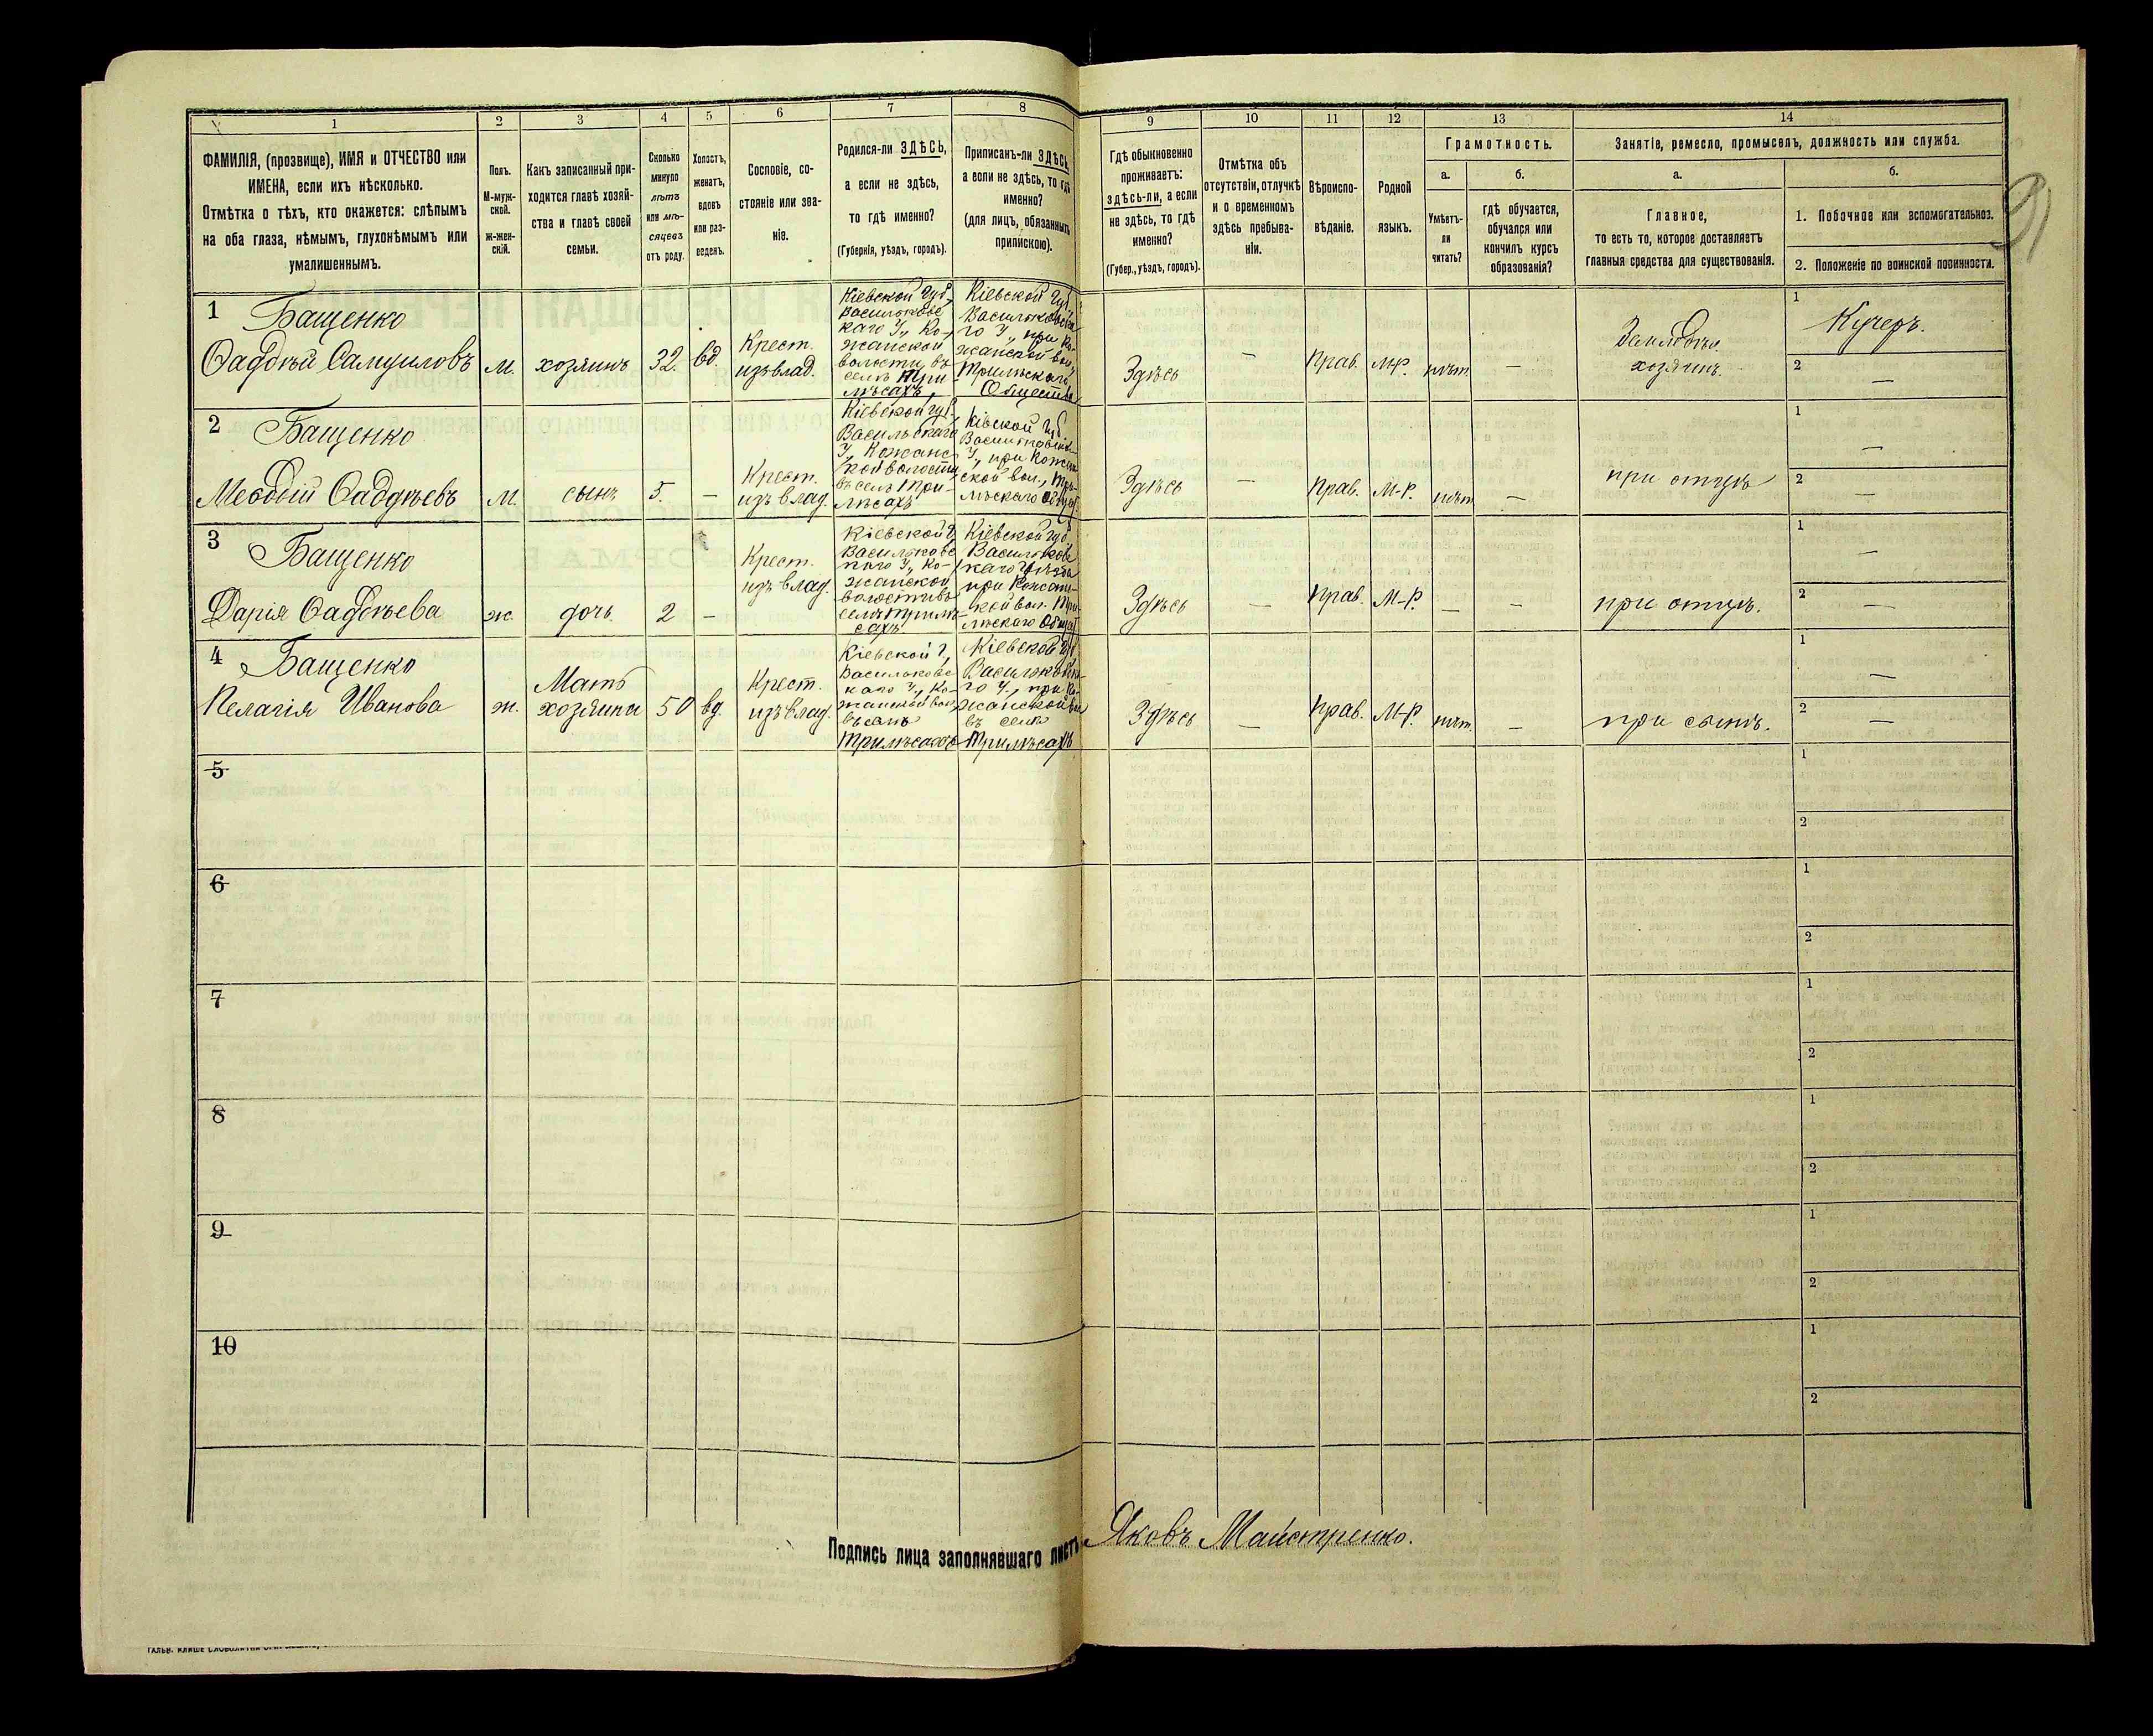 1
2
3
4
5
6
7
8
9
10
11
12
13
14
ФАМИЛІЯ, (прозвище), ИМЯ и ОТЧЕСТВО или
ИМЕНА, если ихъ нѣсколько.
Отмѣтка о тѣхъ, кто окажется: слѣпымъ
на оба глаза, нѣмымъ, глухонѣмымъ или
умалишеннымъ.
Полъ.
М-муж-
ской.
ж-жен-
скій.
Какъ записанный при-
ходится главѣ хозяй-
ства и главѣ своей
семьи.
Сколько
минуло
лѣтъ
или мѣ-
сяцевъ
отъ роду.
Холостъ,
женатъ,
вдовъ
или раз-
веденъ.
Сословіе, со-
стояніе или зва-
ніе.
Родился-ли ЗДѢСЬ,
а если не здѣсь,
то гдѣ именно?
(Губернія, уѣздъ, городъ).
Приписанъ-ли ЗДѢСЬ,
а если не здѣсь, то гдѣ
именно?
(для лицъ, обязанныхъ
припискою).
Гдѣ обыкновенно
проживаетъ:
здѣсь-ли, а если
не здѣсь, то гдѣ
именно?
(Губер., уѣздъ, городъ).
Отмѣтка объ
отсутствіи, отлучкѣ
и о временномъ
здѣсь пребыва-
ніи.
Вѣроиспо-
вѣданіе.
Родной
языкъ.
Грамотность.
а.
Умѣетъ-
ли
читать?
б.
гдѣ обучается,
обучался или
кончилъ курсъ
образованія?
Занятіе, ремесло, промыселъ, должность или служба.
а.
Главное,
то есть то, которое доставляетъ
главныя средства для существованія.
б.
1. Побочное или вспомогательное.
2. Положеніе по воинской повинности.
1 Бащенко
Фаддѣй Самуиловъ
м.
хозяинъ
32.
вд.
Крест.
изъ влад.
Кіевской Губ.,
Васильковс
каго У., Ко-
жанской
волости, въ
селѣ Три-
лѣсахъ
Кіевской Губ.
Васильковска
го У., при Ко-
жанской вол.,
Трилѣскаго
Общества
Здѣсь
—
Прав.
М-Р.
нѣт.
—
Землевлад.
хозяинъ.
1
Кучеръ.
2
—
2 Бащенко
Меѳодій Фаддѣевъ
м.
сынъ
5.
—
Крест.
изъ влад.
Кіевской губ.,
Васильскаго
У., Кожанс
кой волости
въ селѣ Три-
лѣсахъ
Кіевской Губ
Васильковск
У., при Кожан
ской вол., Три-
лѣскаго Общест
Здѣсь
—
Прав.
М-Р.
нѣт
—
при отцѣ
1
—
2
—
3 Бащенко
Дарія Фаддѣева
ж.
дочь
2
—
Крест.
изъ влад.
Кіевской Г,
Васильковс
каго У., Ко-
жанской
волости въ
селѣ Трилѣ-
сахъ
Кіевской Губ
Васильковс
каго Уѣзда
при Кожанс-
кой вол. Три-
лѣскаго Общест
Здѣсь
—
Прав.
М-Р.
—
—
при отцѣ.
1
—
2
—
4 Бащенко
Пелагія Иванова
ж.
Мать
хозяина
50
вд.
Крест.
изъ влад.
Кіевской Г,
Васильковс
каго У., Ко-
жанской вол
въ селѣ
Трилѣсахъ
Кіевской Губ
Васильковска-
го У., при Ко-
жанской вол
въ селѣ
Трилѣсахъ
Здѣсь
—
Прав.
М-Р.
нѣт.
—
при сынѣ.
1
—
2
—
5
1
2
6
1
2
7
1
2
8
1
2
9
1
2
10
1
2
Подпись лица заполнявшаго листъ Яковъ Майстренко.